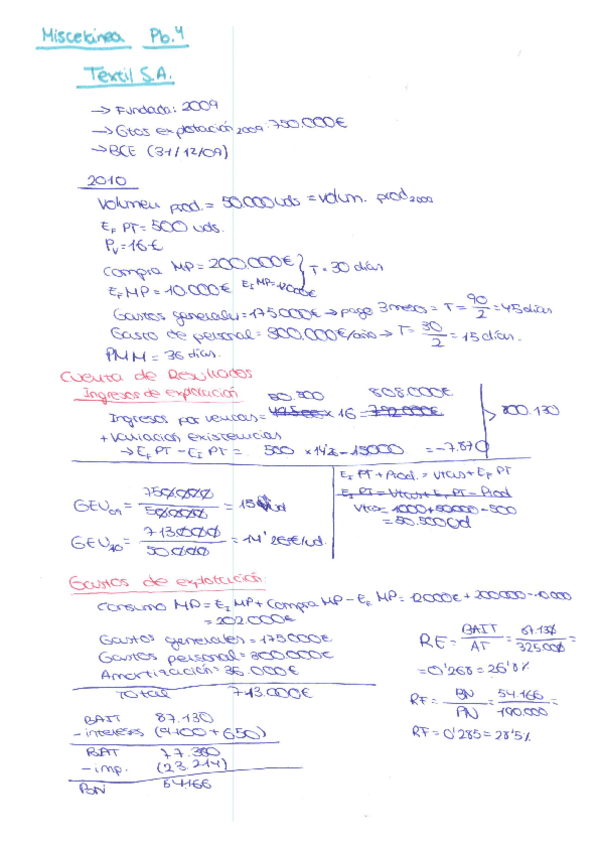 Miscelánea Pb.4
Textil S.A.
→ Fundada: 2009
→ Gtos explotación 2009: 750.000€
→ BCE (31/12/09)
2010
Volumen prod. = 50.000 uds = volum. prod 2009
EF PT = 500 uds.
Pv = 16€
Compra MP = 200.000€ } T = 30 días
EF MP = 10.000€ EI MP = 12000€
Gastos generales = 175000€ → pago 3 meses = T = 90/2 = 45 días
Gasto de personal = 300.000€/año → T = 30/2 = 15 días.
PMM = 36 días.
Cuenta de Resultados
Ingresos de explotación
50.500 808.000€
Ingresos por ventas = 49.500 × 16 = 792.000€ 800.130
+ Variación existencias
→ EF PT - EI PT = 500 × 14'26 - 15000 = -7.870
EI PT + Prod. = Vtas + EF PT
EI PT = Vtas + EF PT - Prod
Vtas = 1000 + 50000 - 500
= 50.500 ud
GEU09 = 750000/50000 = 15€/ud
GEU10 = 713000/50.000 = 14'26€/ud.
Gastos de explotación:
Consumo MP = EI MP + Compra MP - EF MP = 12000€ + 200000 - 10.000
= 202.000€
Gastos generales = 175000€
Gastos personal = 300.000€
Amortización = 36.000€
Total 713.000€
BAIT 87.130
- intereses (9.100 + 650)
BAT 77.380
- imp. (23.214)
BN 54.166
RE = BAIT/AT = 87.130/325.000 =
= 0'268 = 26'8%
RF = BN/PN = 54.166/190.000 =
RF = 0'285 = 28'5%